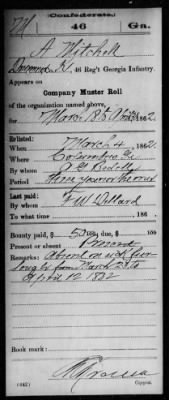 (Confederate.)
M 46 Ga.
A Mitchell
K, 46 Reg't Georgia Infantry.
Appears on
Company Muster Roll
of the organization named above,
for March 12 to 1862.
Enlisted:
When March 4, 1862.
Where Columbus Ga
By
Period three years or the war
Last paid:
By F W Dillard
To what time , 186 .
Bounty paid, $ 50 ; due $ 100
Present or absent Present
Remarks: absent on sick fur-
lough from March 23 to
April 12 1862
Book mark:
(642) Copyist.